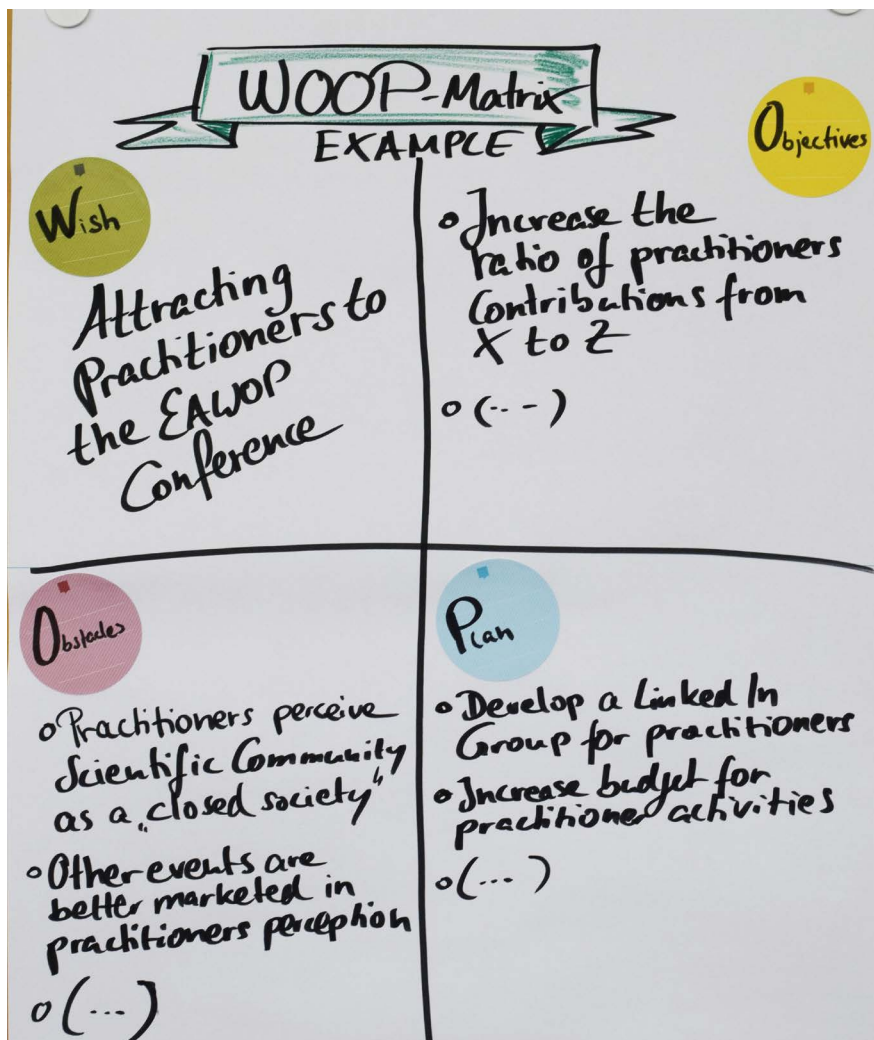 WOOP-Matrix
EXAMPLE
Wish
Attracting
Practitioners to
the EAWOP
Conference
Objectives
o Increase the
ratio of practitioners
Contributions from
X to Z
o (...)
Obstacles
o Practitioners perceive
Scientific Community
as a „closed society“
o Other events are
better marketed in
practitioners perception
o (...)
Plan
o Develop a Linked In
Group for practitioners
o Increase budget for
practitioner activities
o (...)